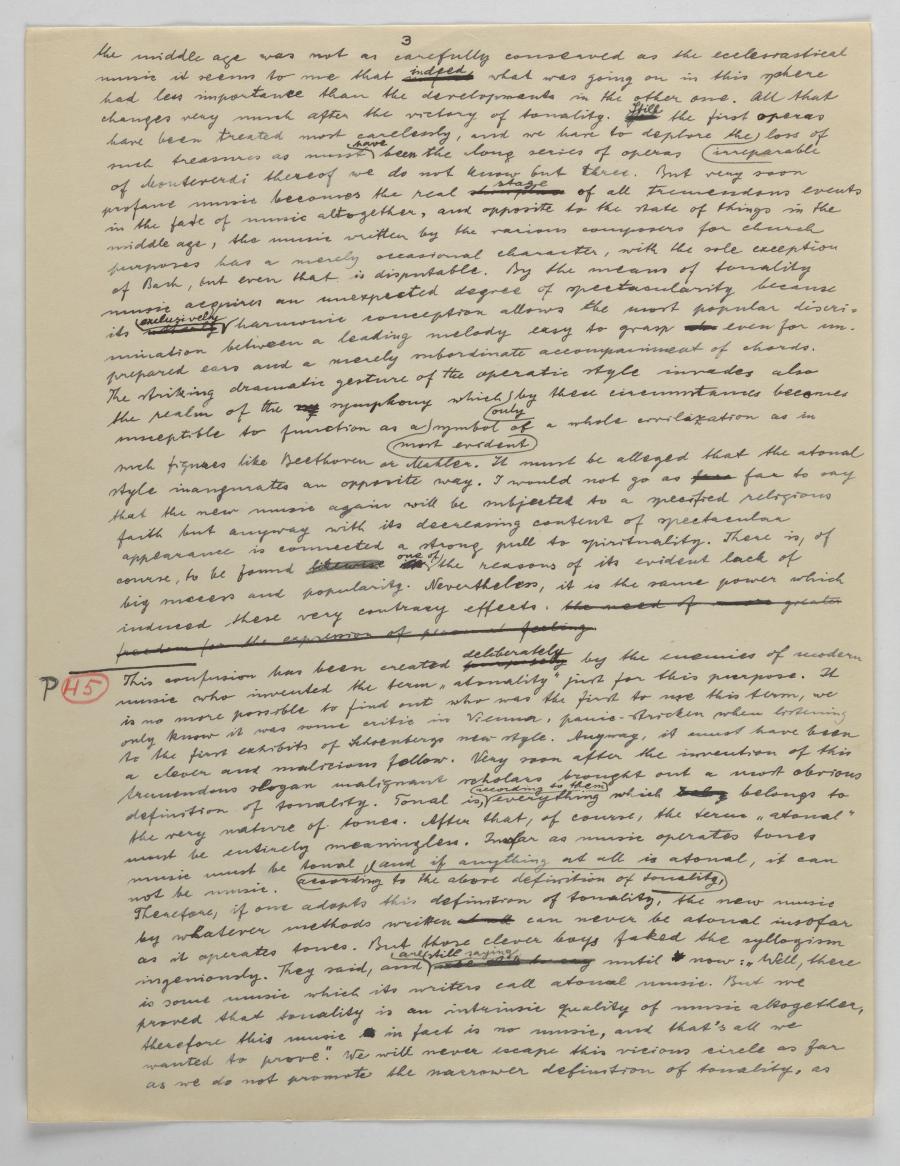 3
the middle age was not as carefully conserved as the ecclesiastical
music it seems to me that indeed what was going on in this sphere
had less importance than the developments in the other one. All that
changes very much after the victory of tonality. Still the first operas
have been treated most carelessly, and we have to deplore the loss of
such treasures as must have been the long series of operas irreparable
of Monteverdi thereof we do not know but three. But very soon
profane music becomes the real stage of all tremendous events
in the fate of music altogether, and opposite to the state of things in the
middle age, the music written by the various composers for church
purposes has a merely occasional character, with the sole exception
of Bach, but even that is disputable. By the means of tonality
music acquires an unexpected degree of spectacularity because
its exclusively harmonic conception allows the most popular discri-
mination between a leading melody easy to grasp even for un-
prepared ears and a merely subordinate accompaniment of chords.
The striking dramatic gesture of the operatic style invades also
the realm of the symphony which by these circumstances becomes
only
susceptible to function as a symbol of a whole civilization as in
most evident
such figures like Beethoven or Mahler. It must be alleged that the atonal
style inaugurates an opposite way. I would not go as far to say
that the new music again will be subjected to a specified religious
faith but anyway with its decreasing content of spectacular
appearance is connected a strong pull to spirituality. There is, of
course, to be found likewise one of the reasons of its evident lack of
big success and popularity. Nevertheless, it is the same power which
induced these very contrary effects. the need of greater
freedom for the expression of personal feeling
deliberately
P 45 This confusion has been created purposely by the enemies of modern
music who invented the term „atonality" just for this purpose. It
is no more possible to find out who was the first to use this term, we
only know it was some critic in Vienna, panic-stricken when listening
to the first exhibits of Schoenbergs new style. Anyway, it must have been
a clever and malicious fellow. Very soon after the invention of this
tremendous slogan malignant scholars brought out a most obvious
according to them
definition of tonality. Tonal is, everything which belongs to
the very nature of tones. After that, of course, the term „atonal"
must be entirely meaningless. Insofar as music operates tones
music must be tonal, and if anything at all is atonal, it can
not be music. according to the above definition of tonality,
Therefore, if one adopts this definition of tonality, the new music
by whatever methods written can never be atonal insofar
as it operates tones. But those clever boys faked the syllogism
are still saying
ingeniously. They said, and until now: „Well, there
is some music which its writers call atonal music. But we
proved that tonality is an intrinsic quality of music altogether,
therefore this music in fact is no music, and that's all we
wanted to prove". We will never escape this vicious circle as far
as we do not promote the narrower definition of tonality, as